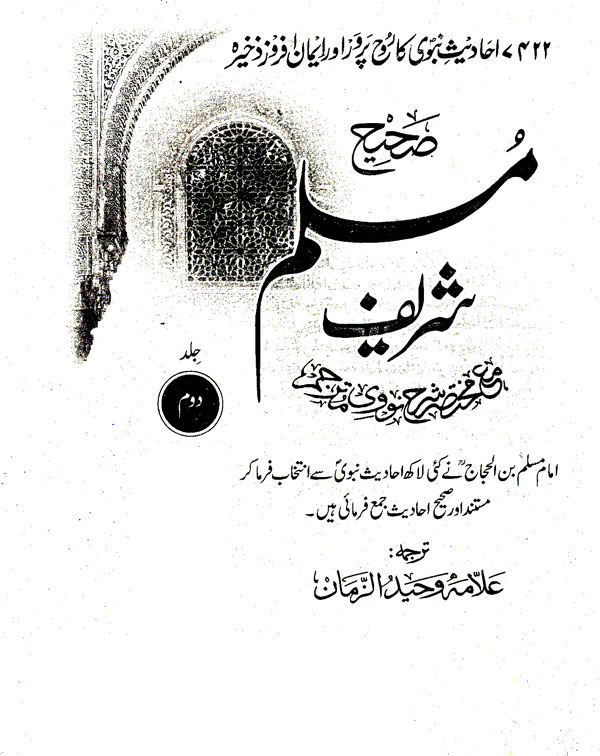 ۷۴۲۲ احادیثِ نبویؐ کا رُوح پرور اور ایمان افروز ذخیرہ
صَحِیح
مُسلم
شریف
جلد
دوم
مع مختصر شرح نوویؒ مترجم
امام مسلم بن الحجاجؒ نے کئی لاکھ احادیث نبویؐ سے انتخاب فرما کر
مستند اور صحیح احادیث جمع فرمائی ہیں۔
ترجمہ:
علّامہ وحیدُ الزّمان